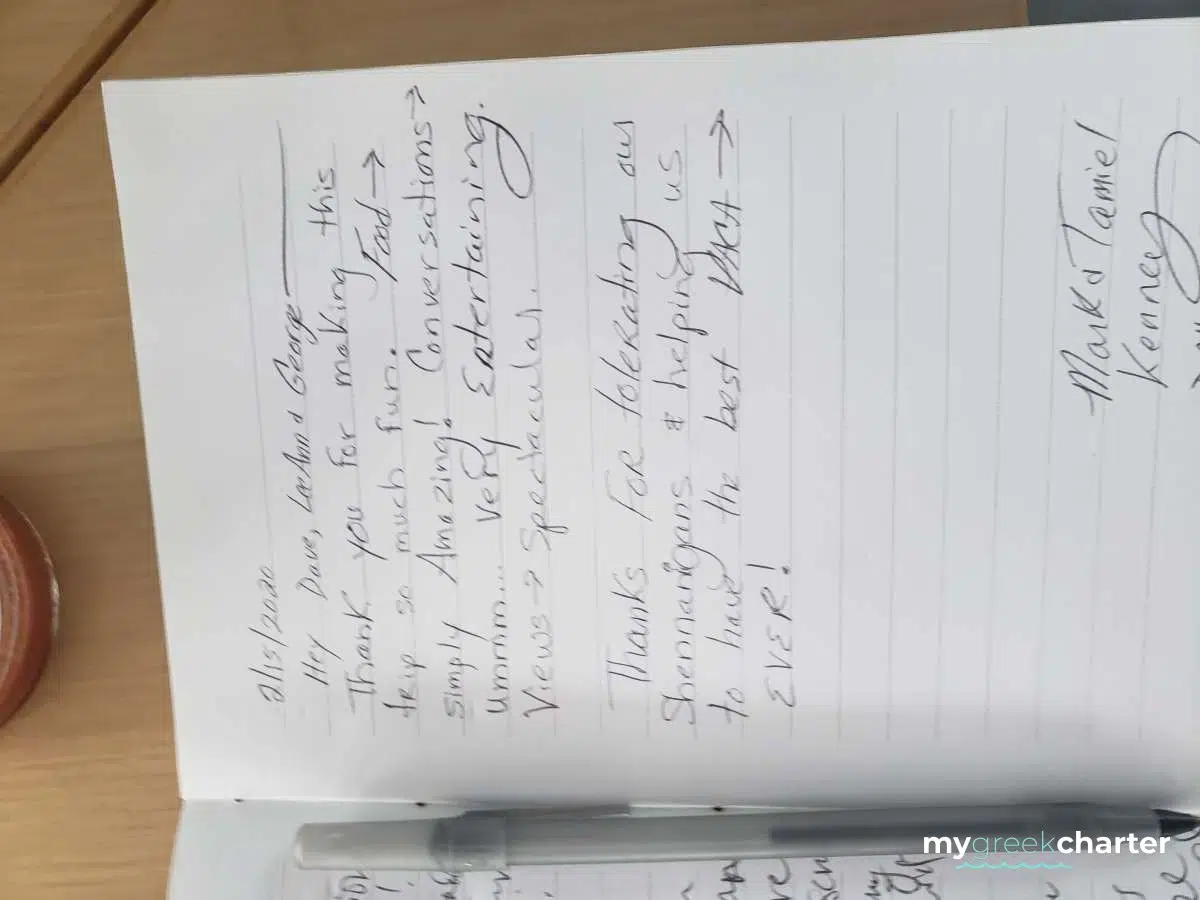 2/15/2020
Hey Dave, LeeAnn & George
Thank you for making this
trip so much fun. Food →
simply Amazing! Conversations →
ummm.... very Entertaining.
Views → Spectacular.
Thanks For tolerating our
Shennanigans & helping us
to have the best VACA →
EVER!
Mark & Tamiel
Kenney
mygreekcharter